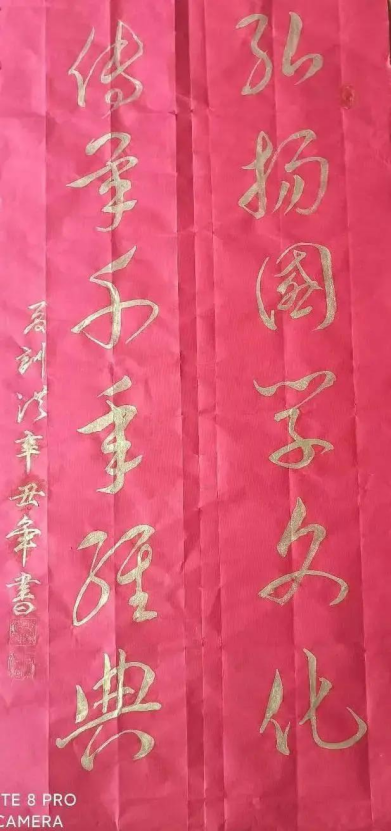 弘揚國学文化
傳承千年經典
夏訓洪辛丑年書
TE 8 PRO
CAMERA